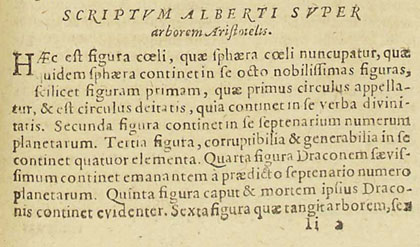 SCRIPTVM ALBERTI SVPER
arborem Aristotelis.
HÆc est figura cœli, quæ sphæra cœli nuncupatur, quæ
quidem sphæra continet in se octo nobilissimas figuras,
scilicet figuram primam, quæ primus circulus appella-
tur, & est circulus deitatis, quia continet in se verba divini-
tatis. Secunda figura continet in se septenarium numerum
planetarum. Tertia figura, corruptibilia & generabilia in se
continet quatuor elementa. Quarta figura Draconem sævis-
simum continet emanantem à prædicto septenario numero
planetarum. Quinta figura caput & mortem ipsius Draco-
nis continet evidenter. Sexta figura quæ tangit arborem, sex
Ii 2